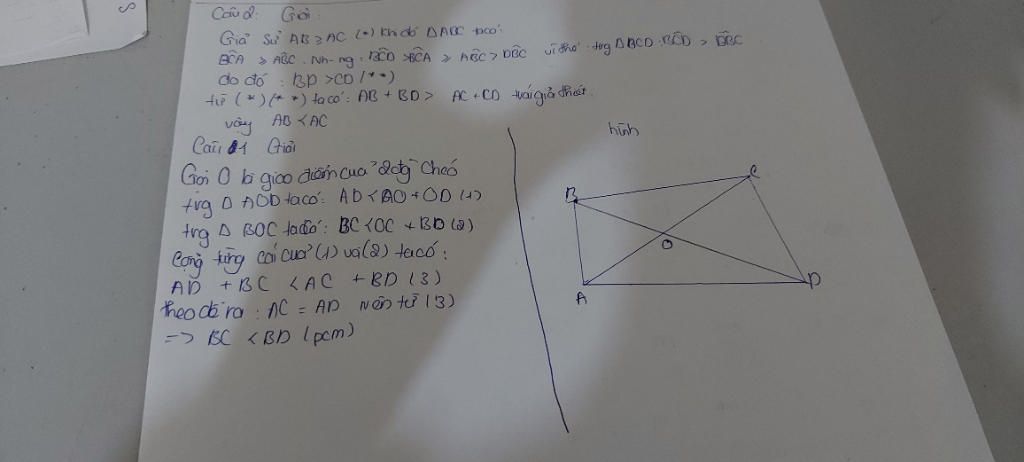 Câu 2: Giải:
Giả sử AB ≥ AC (*) khi đó ΔABC ta có:
BĈA ≥ AB̂C. Nhưng: BĈD > BĈA ≥ AB̂C > DB̂C vì thế trg ΔBCD: BĈD > DB̂C
do đó: BD > CD (**)
từ (*) (**) ta có: AB + BD > AC + CD trái giả thiết.
vậy AB < AC
Câu 1 Giải
Gọi O là giao điểm của 2 đg chéo
trg Δ AOD ta có: AD < AO + OD (1)
trg Δ BOC ta có: BC < OC + BO (2)
Cộng từng cái của (1) và (2) ta có:
AD + BC < AC + BD (3)
theo đề ra: AC = AD nên từ (3)
=> BC < BD (pcm)
hình
B
C
O
A
D